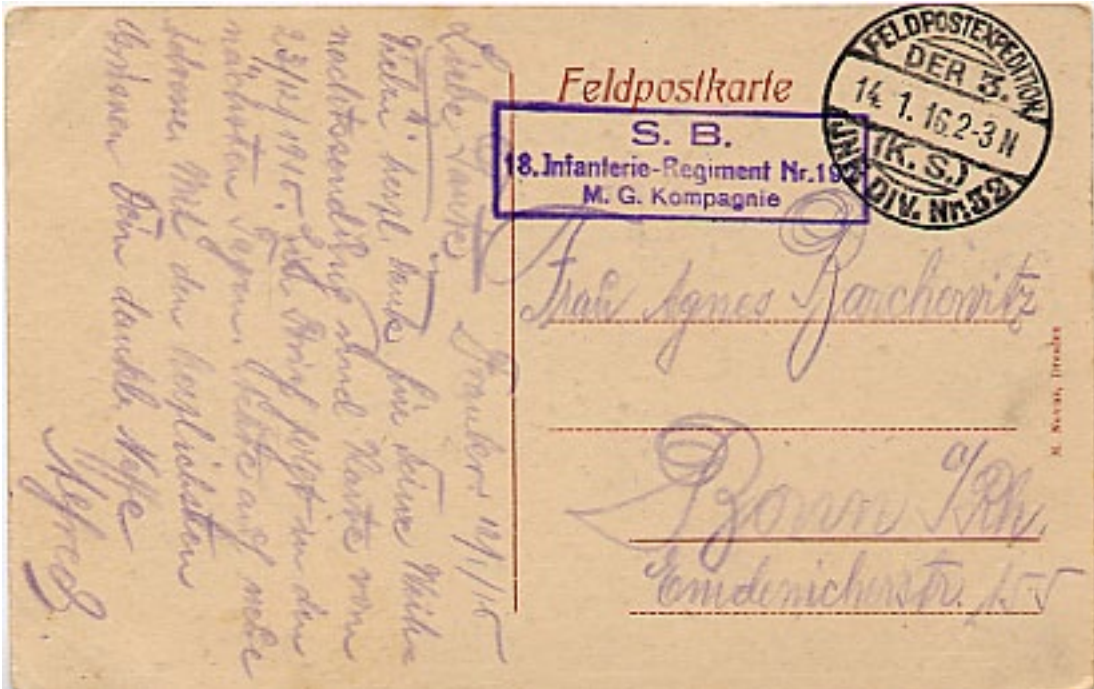 Feldpostkarte
FELDPOSTEXPEDITION
DER 3.
14. 1. 16. 2-3 N
(K. S.)
INF. DIV. Nr. 32
S. B.
18. Infanterie-Regiment Nr. 19
M. G. Kompagnie
Frau Agnes Barchewitz
Bonn a/Rh.
Endenicherstr. 155
M. Dresden
Liebe Tante! 12/1/16
Vielen herzl. Dank für Deine Weihn
nachtssendung und Karte vom
23/12/1915. Ein Brief folgt in den
nächsten Tagen.
Mit den herzlichsten
Grüssen Dein dankb. Neffe
Alfred.